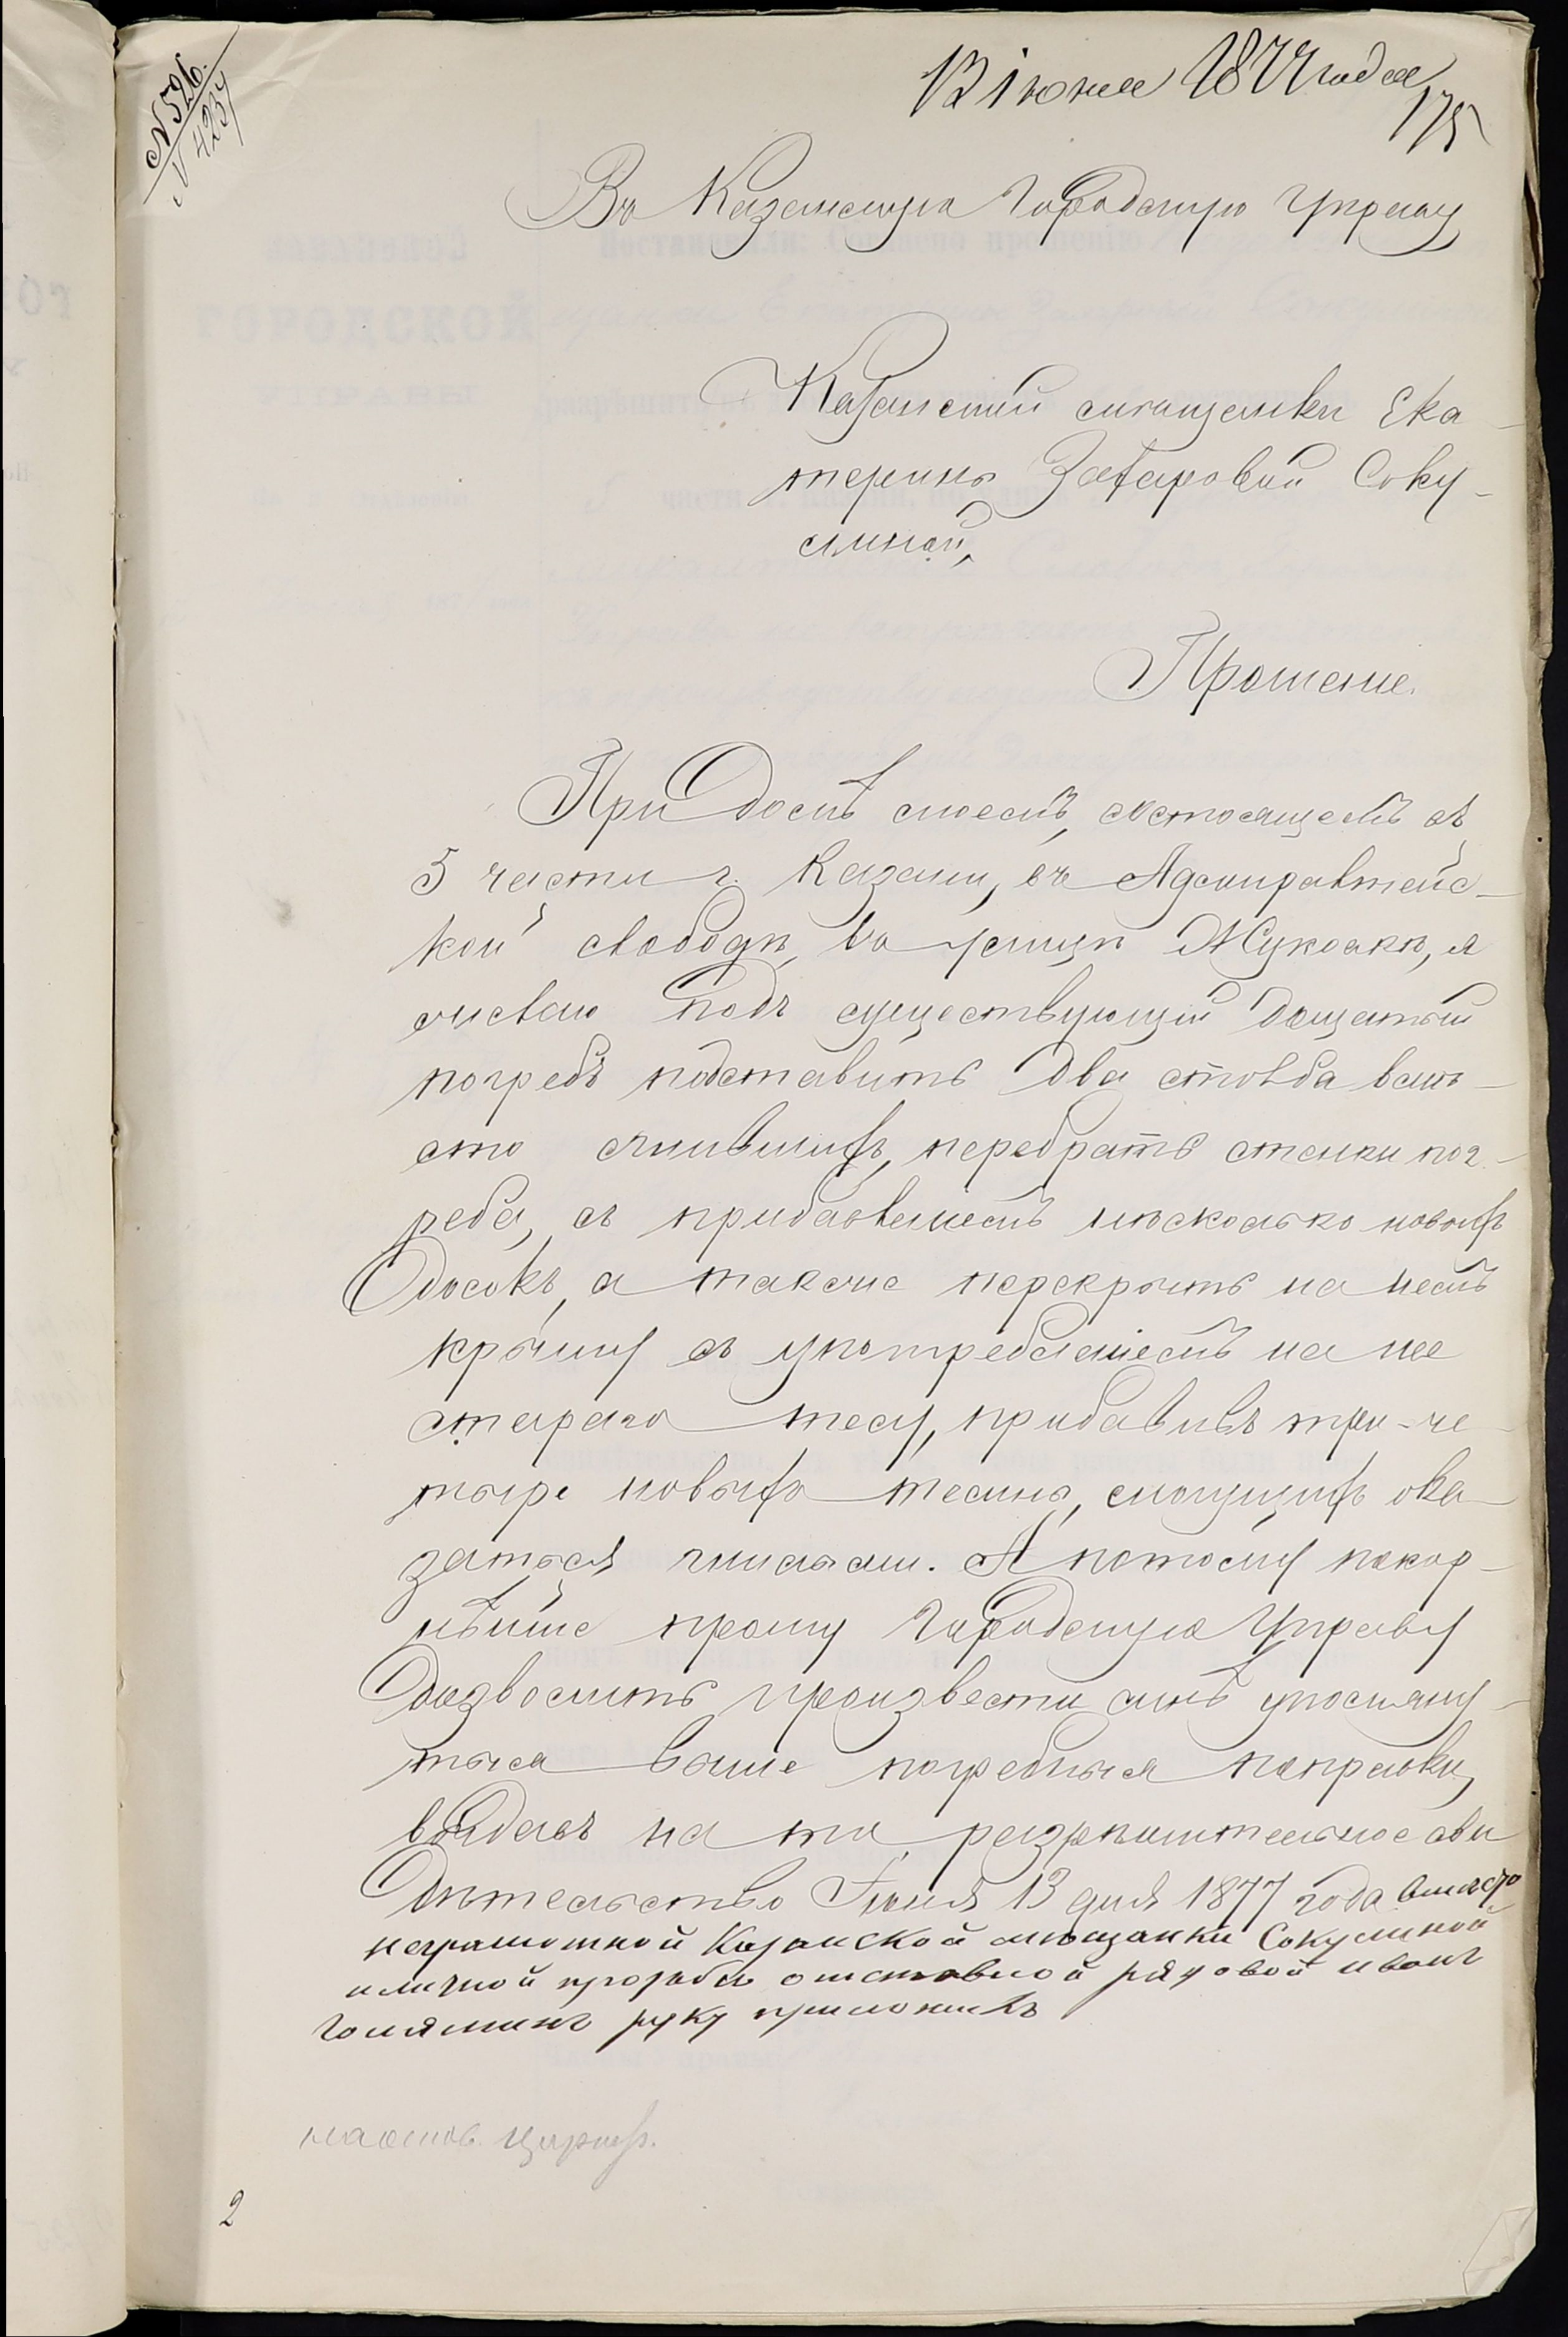 № 526.
№ 4237
13 іюня 1877 года
175
Въ Казанскую Городскую Управу
Казанской мѣщанки Ека-
терины Захаровой Соку-
линой,
Прошеніе.
При домѣ моемъ, состоящемъ въ
5 части г. Казани, въ Адмиралтейс-
кой слободѣ, въ улицѣ Жуковкѣ, я
имѣю подъ существующій дощатый
погребъ подставить два столба вмѣ-
сто сгнившихъ, перебрать стенки пог-
реба, съ прибавленіемъ нѣсколько новыхъ
досокъ, а также перекрыть на немъ
крышу съ употребленіемъ на нее
стараго тесу, прибавивъ три-че-
тыре новыхъ тесины, могущихъ ока-
заться гнилыми. А потому покор-
нѣйше прошу Городскую Управу
дозволить произвести мнѣ упомяну-
тыя выше погребныя поправки,
выдавъ на то разрѣшительное сви
дѣтельство Іюня 13 дня 1877 года Вместо
неграмотной Казанской мѣщанки Сокулиной
и личной прозьбы отставной рядовой иванъ
руку приложилъ
2